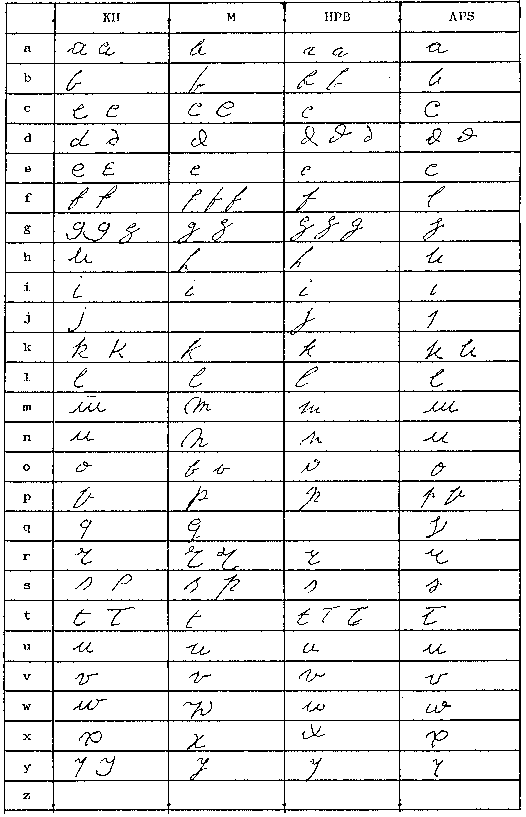 KH M HPB APS
a a a a a a a
b b b b b b
c c c c c c C
d d d d d d d d d
e e ε e e e
f f f f f f f l
g g g g g g g g g g
h h h h h
i i i i i
j j j j
k k k k k k k
l l l l l
m m m m m
n n n n n
o o o o o o
p p p p p p
q q q q
r r r r r r
s s s s s s s
t t T t t T t t
u u u u u
v v v v v
w w w w w
x x x x x
y y y y y y
z